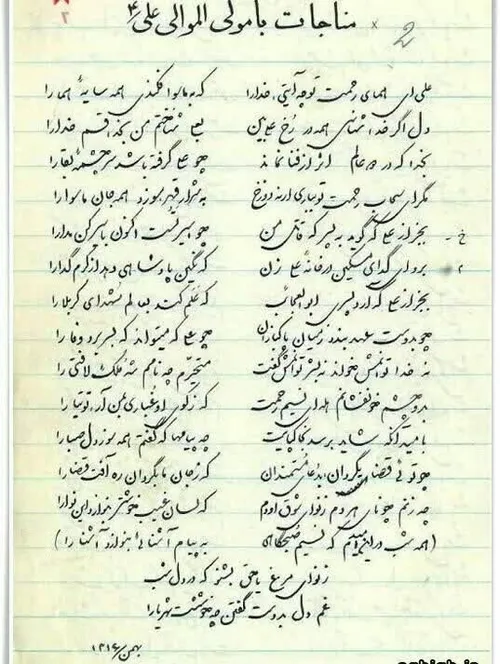 مناجات با مولی الموالی علی ع
علی ای همای رحمت تو چه آیتی خدا را که به ماسوا فکندی همه سایهٔ هما را
دل اگر خداشناسی همه در رخ علی بین به علی شناختم من بخدا قسم خدا را
بخدا که در دو عالم اثر از فنا نماند چو علی گرفته باشد سر چشمهٔ بقا را
مگر ای سحاب رحمت تو بباری ارنه دوزخ به شرار قهر سوزد همه جان ماسوا را
بجز از علی که گوید به پسر که قاتل من چو اسیر تست اکنون باسیر کن مدارا
برو ای گدای مسکین در خانهٔ علی زن که نگین پادشاهی دهد از کرم گدا را
بجز از علی که آرد پسری ابوالعجائب که علم کند بعالم شهدای کربلا را
چو بدوست عهد بندد ز میان پاکبازان چو علی که میتواند که بسر برد وفا را
نه خدا توانمش خواند نه بشر توانمش گفت متحیرم چه نامم شه ملک لافتی را
بدو چشم خونفشانم هله ای نسیم رحمت که ز کوی او غباری بمن آر توتیا را
بامید آنکه شاید برسد بخاک پایت چه پیامها که گفتم همه سوز دل صبا را
چو توئی قضا بگردان بدعای مستمندان که ز جان ما بگردان ره آفت قضا را
چه زنم چو نای هر دم ز نوای شوق او دم که لسان غیب خوشتر بنوازد این نوا را
(همه شب در این امیدم که نسیم صبحگاهی به پیام آشنائی بنوازد آشنا را)
ز نوای مرغ یا حق بشنو که در دل شب
غم دل بدوست گفتن چه خوشست شهریارا
بهمن/۱۳۱۶